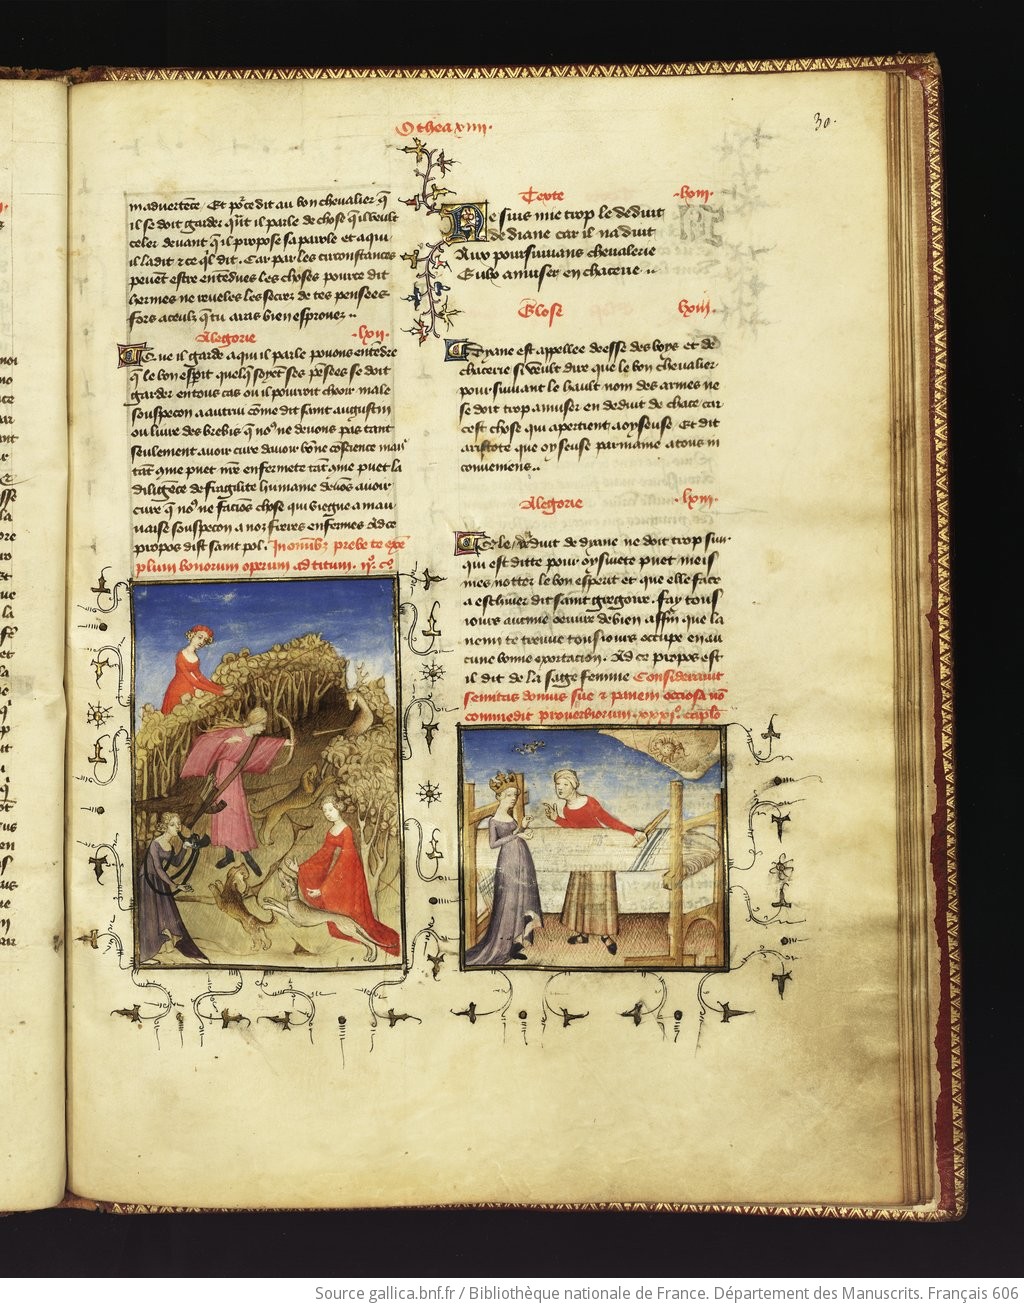 Othea xiiii.
30.
maduertẽce. Et pour ce dit au bon chevalier q̃
il se doit garder quãt il parle de chose q̃ il veult
celer devant qui il propose sa parole et a qui
il la dit ⁊ ce ql̃ dit. Car par les circonstances
peuẽt estre entẽdues les choses pour ce dit
hermes ne reveles les secrez de tes pensees
fors a ceulx q̃ tu aras bien esprouvez ..
Alegorie .lxii.
Que il garde a qui il parle povons entẽdre
q̃ le bon esperit quelx q̃ soyẽt ses pẽsees se doit
garder en tous cas ou il pourroit chooir male
souspecon a autrui cõme dit saint augustin
ou livre des brebis que noꝰ ne devons pas tant
seulement avoir cure davoir bõne cõscience mais
tãt q̃me puet nr̃e enfermete tãt q̃me puet la
diligẽce de fragilite humaine devõs avoir
cure q̃ noꝰ ne facions chose qui viegne a mau
vaise souspecon a noz freres enfermes Ad ce
propos dist saint pol. In omnibꝰ prebe te exẽ
plum bonorum operum ad titum. ijº. cº
Texte .lxiii.
Ne suis mie trop le deduit
de diane car il na duit
Aux poursuivans chevalerie
Eulx amuser en chacerie ..
Glose lxiii.
Dyane est appellee deesse des boys et de
chacerie si veult dire que le bon chevalier
poursuivant le hault nom des armes ne
se doit trop amuser en deduit de chace car
cest chose qui apertient a oyseuse. Et dit
aristote que oyseuse parmaine a touz in
conveniens..
Alegorie .lxiii.
Que le deduit de dyane ne doit trop suir
qui est ditte pour oysivete puet meis
mes notter le bon esperit et que elle face
a eschiver dit saint gregoire. fay tous
iours aucune oeuvre de bien affin que la
nemi te treuve tousiours occupe en au
cune bonne exortacion. Ad ce propos est
il dit de la sage femme Consideravit
semitas domus sue ⁊ panem occiosa nõ
commedit proverbiorum. xxxiº. caplo
Source gallica.bnf.fr / Bibliothèque nationale de France. Département des Manuscrits. Français 606